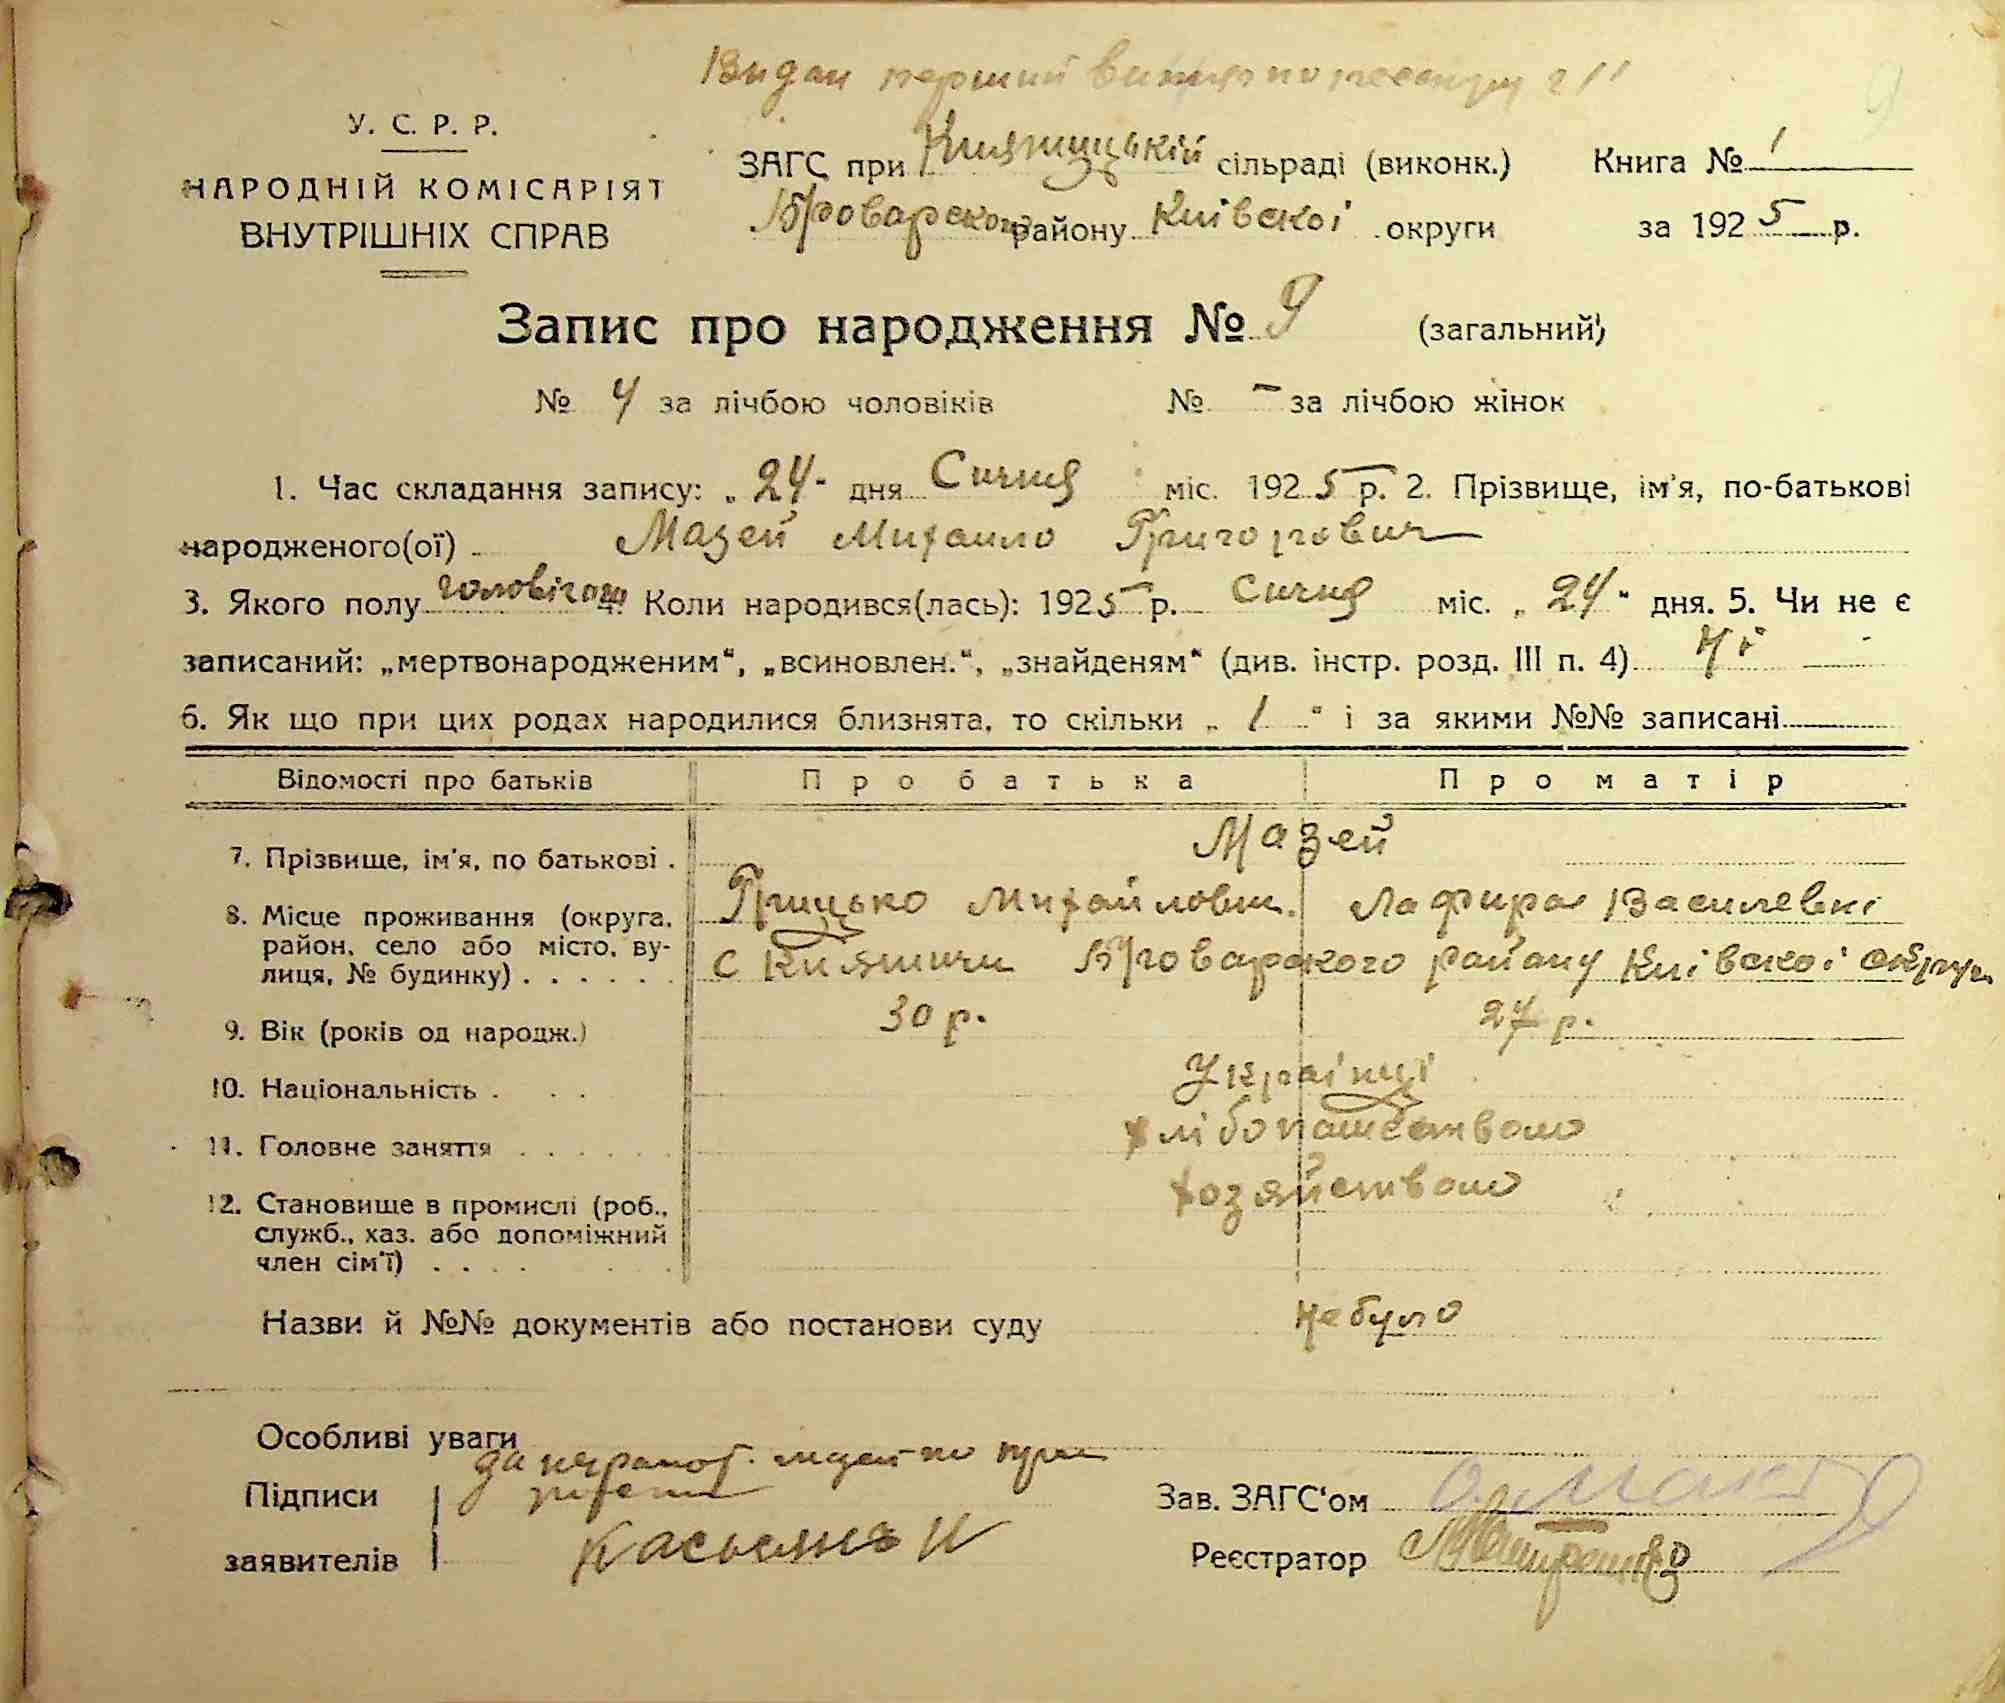 Видан перший випис по реєстру 
У. С. Р. Р.
НАРОДНІЙ КОМІСАРІЯТ
ВНУТРІШНІХ СПРАВ
ЗАГС при Княжицькій сільраді (виконк.) Книга № 1
Броварского району Київскої округи за 1925 р.
Запис про народження № 9 (загальний)
№ 4 за лічбою чоловіків № – за лічбою жінок
1. Час складання запису: „24“ дня Січня міс. 1925 р. 2. Прізвище, ім'я, по-батькові
народженого(ої) Мазей Михаило Григорович
3. Якого полу 4. Коли народився(лась): 1925 р. Січня міс. „24“ дня. 5. Чи не є
записаний: „мертвонародженим“, „всиновлен.“, „знайденям“ (див. інстр. розд. III п. 4) Ні
6. Як що при цих родах народилися близнята, то скільки „1“ і за якими №№ записані
Відомості про батьків Про батька Про матір
7. Прізвище, ім'я, по батькові . Мазей
Грицько Михайлович. Василевні
8. Місце проживання (округа,
район, село або місто, ву-
лиця, № будинку) . . . . . . с Княжичи Броварского району Київскої округи
9. Вік (років од народж.) 30 р. 27 р.
10. Національність . . . Українці
11. Головне заняття . . . . . . хлібопашеством
12. Становище в промислі (роб., хозяйством
служб., хаз. або допоміжний
член сім'ї) . . . .
Назви й №№ документів або постанови суду не було
Особливі уваги
за неграмот. по
Підписи
заявителів Касьянъ И
Зав. ЗАГС'ом
Реєстратор